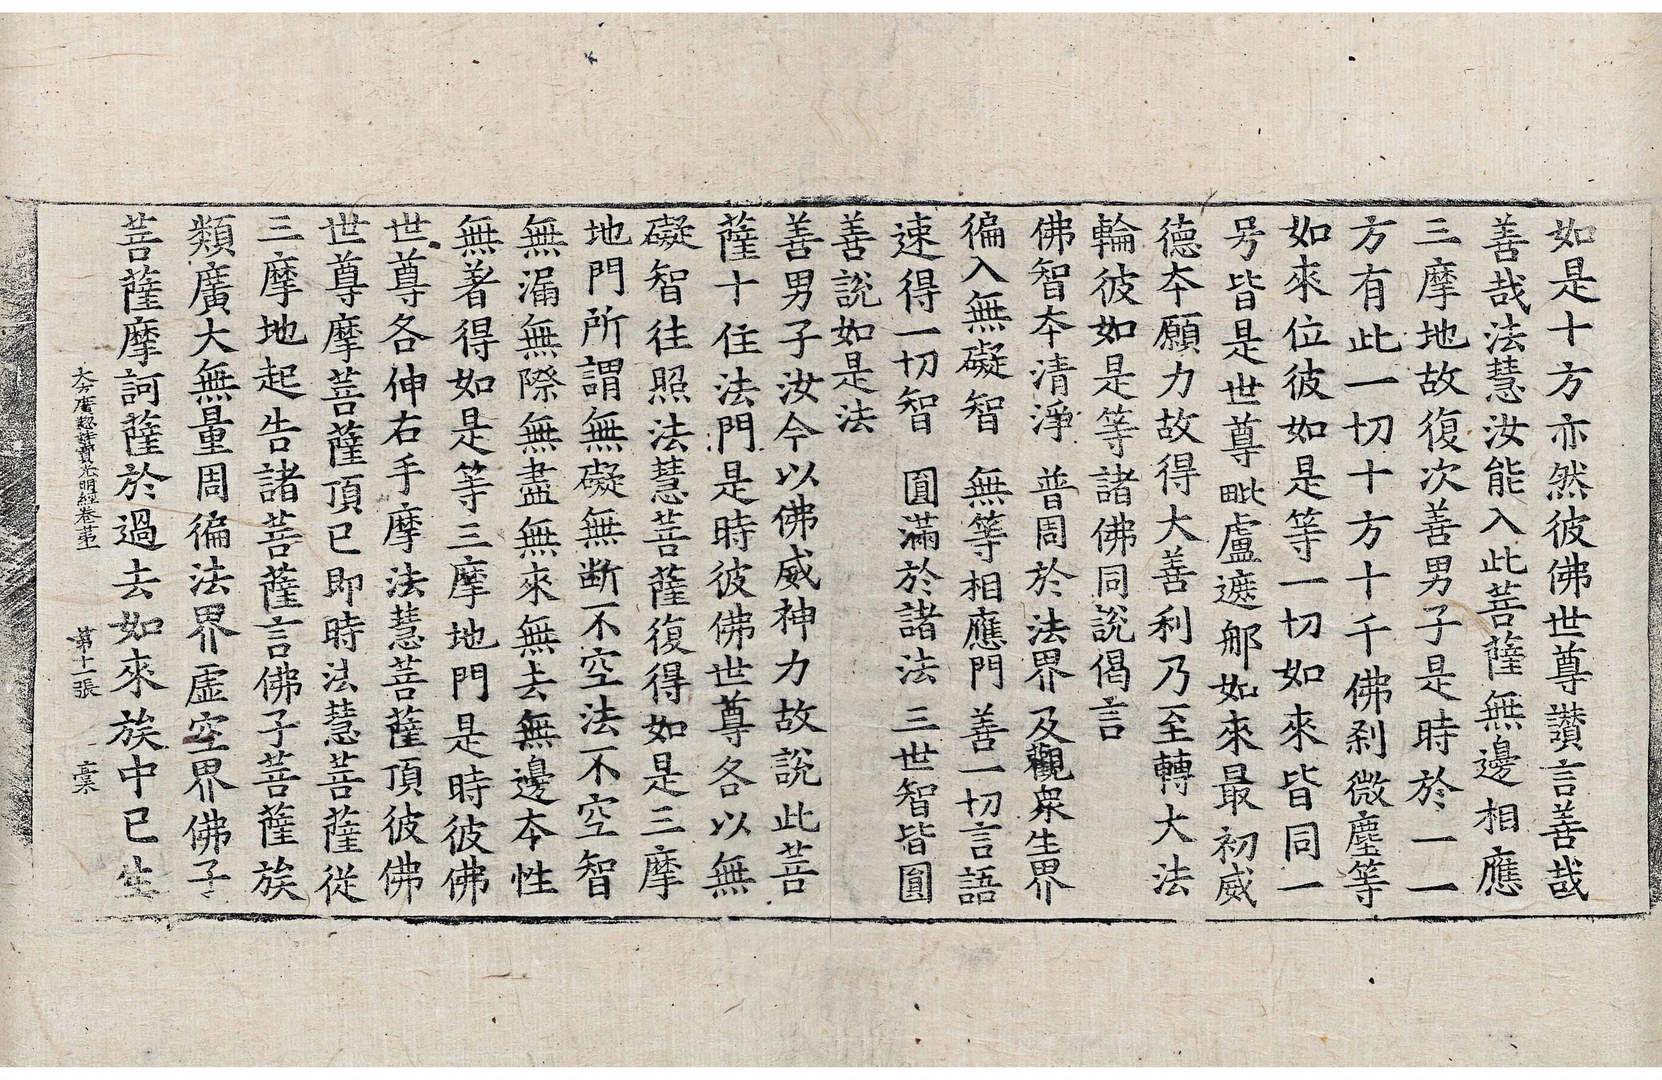 如是十方亦然彼佛世尊讚言善哉
善哉法慧汝能入此菩薩無邊相應
三摩地故復次善男子是時於一一
方有此一切十方十千佛刹微塵等
如來位彼如是等一切如來皆同一
号皆是世尊毗盧遮那如來最初威
德本願力故得大善利乃至轉大法
輪彼如是等諸佛同說偈言
佛智本清淨 普周於法界 及觀衆生界
徧入無礙智 無等相應門 善一切言語
速得一切智 圓滿於諸法 三世智皆圓
善說如是法
善男子汝今以佛威神力故說此菩
薩十住法門是時彼佛世尊各以無
礙智往照法慧菩薩復得如是三摩
地門所謂無礙無断不空法不空智
無漏無際無盡無來無去無邊本性
無著得如是等三摩地門是時彼佛
世尊各伸右手摩法慧菩薩頂彼佛
世尊摩菩薩頂已即時法慧菩薩從
三摩地起告諸菩薩言佛子菩薩族
類廣大無量周徧法界虛空界佛子
菩薩摩訶薩於過去如來族中已生
大方廣緫持寶光明經卷苐 苐十一張